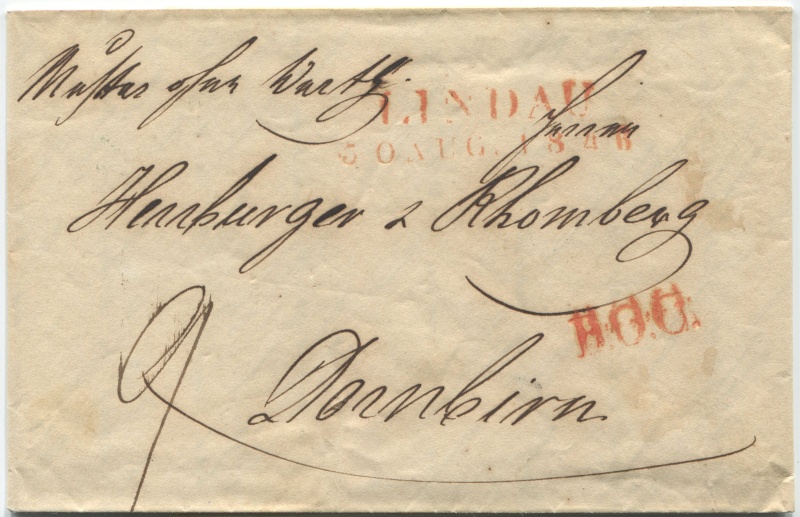 Muster ohne Werth.
LINDAU
30 AUG. 1846
Herren
Herrburger & Rhomberg
R.O.U.
Dornbirn